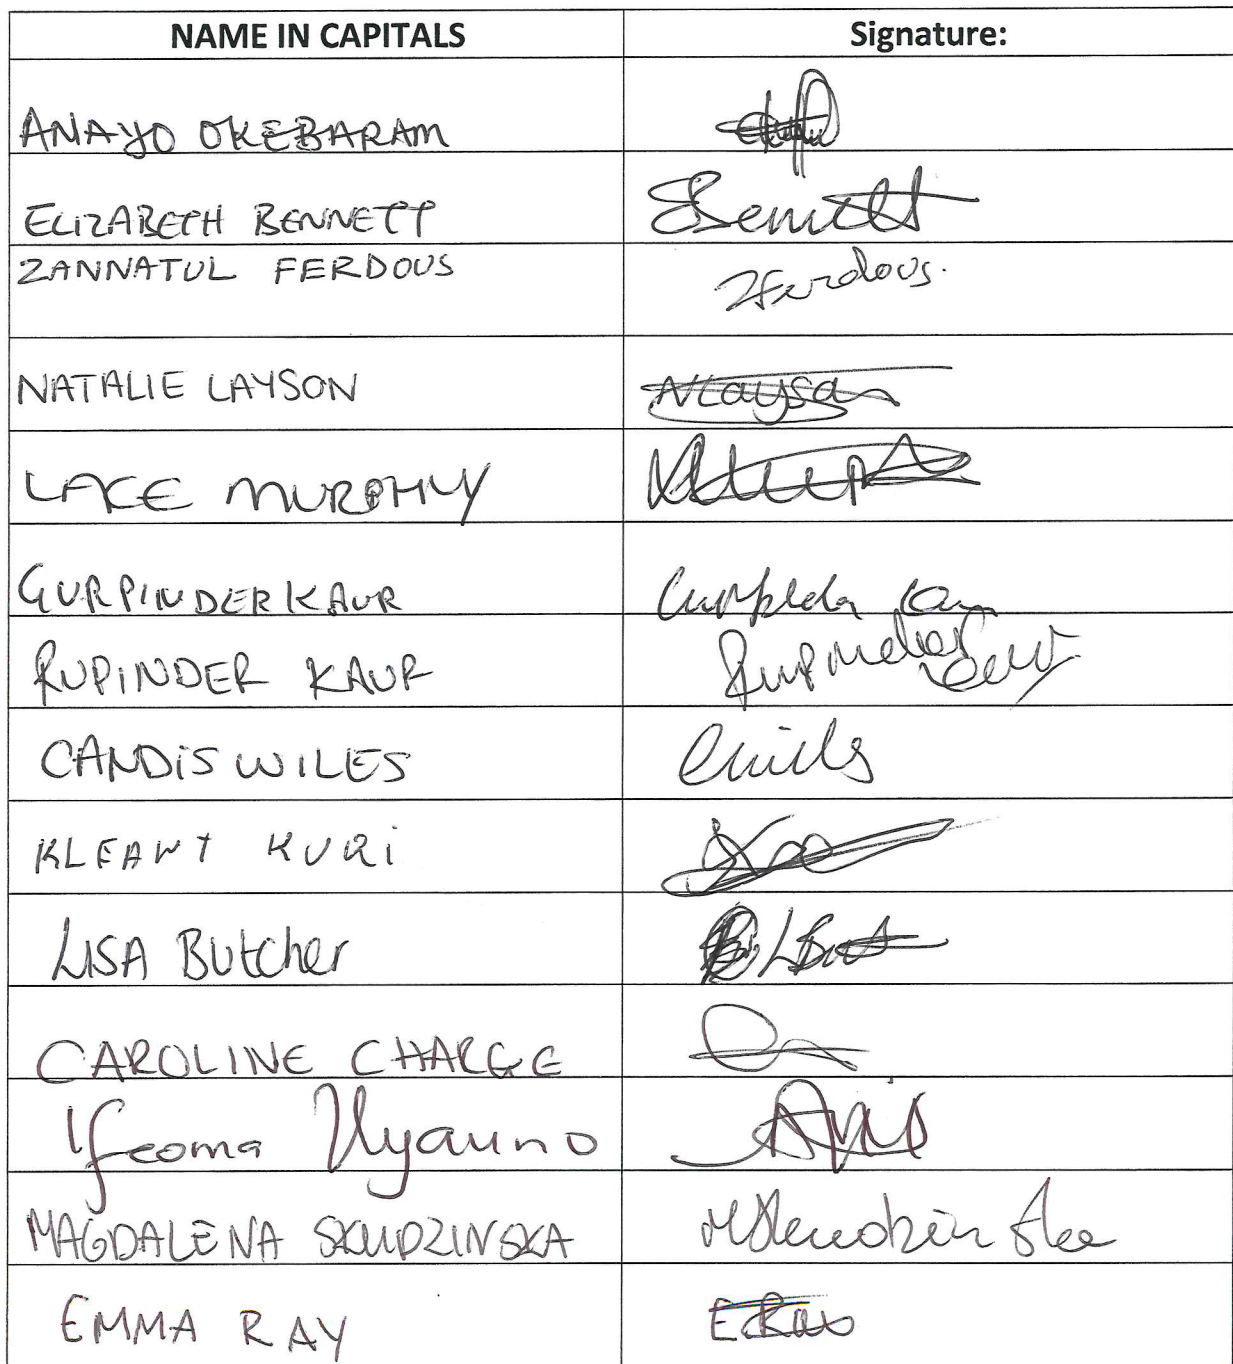 NAME IN CAPITALS Signature:
ANAYO OKEBARAM
ELIZABETH BENNETT EBennett
ZANNATUL FERDOUS ZFerdous.
NATALIE LAYSON NLayson
LACE MURPHY
GURPINDER KAUR
RUPINDER KAUR Rupinder Kaur
CANDIS WILES CWiles
KLEANT KURI
LISA Butcher LBut
CAROLINE CHARGE
Ifeoma
MAGDALENA SKUDZINSKA MSkudzinska
EMMA RAY ERay